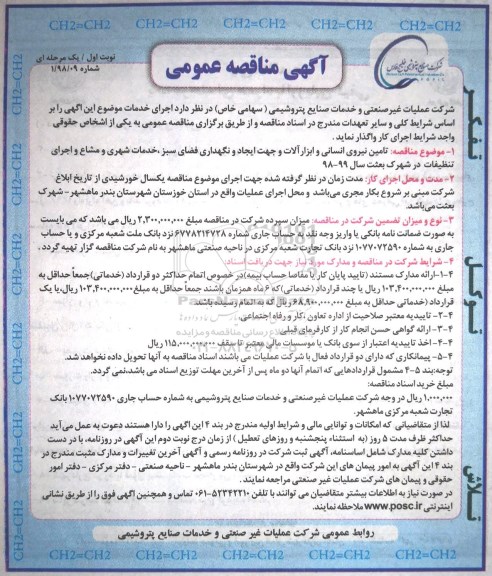 CH2=CH2 CH2=CH2 CH2=CH2 CH2=CH2
نوبت اول / یک مرحله ای
شماره ۱/۹۸/۰۹
آگهی مناقصه عمومی
شرکت عملیات غیرصنعتی و خدمات صنایع پتروشیمی ( سهامی خاص) در نظر دارد اجرای خدمات موضوع این آگهی را بر
اساس شرایط کلی و سایر تعهدات مندرج در اسناد مناقصه و از طریق برگزاری مناقصه عمومی به یکی از اشخاص حقوقی
واجد شرایط اجرای کار واگذار نماید .
۱- موضوع مناقصه: تامین نیروی انسانی و ابزارآلات و جهت ایجاد و نگهداری فضای سبز ،خدمات شهری و مشاع و اجرای
تنظیفات در شهرک بعثت سال ۹۹-۹۸
۲- مدت و محل اجرای کار: مدت زمان در نظر گرفته شده جهت اجرای موضوع مناقصه یکسال خورشیدی از تاریخ ابلاغ
شرکت مبنی بر شروع بکار مجری می‌باشد و محل اجرای عملیات واقع در استان خوزستان شهرستان بندر ماهشهر- شهرک
بعثت می‌باشد.
۳- نوع و میزان تضمین شرکت در مناقصه: میزان سپرده شرکت در مناقصه مبلغ ۲,۳۰۰,۰۰۰,۰۰۰ ریال می باشد که می بایست
به صورت ضمانت نامه بانکی یا واریز وجه نقد به حساب جاری شماره ۶۷۷۸۲۱۴۷۲۸ نزد بانک ملت شعبه مرکزی و یا حساب
جاری به شماره ۱۰۷۷۰۷۲۵۹۰ نزد بانک تجارت شعبه مرکزی در ناحیه صنعتی ماهشهر به نام شرکت مناقصه گزار تهیه گردد .
۴- شرایط شرکت در مناقصه و مدارک مورد نیاز جهت دریافت اسناد:
۴-۱- ارائه مدارک مستند (تایید پایان کار یا مفاصا حساب بیمه)در خصوص اتمام حداکثر دو قرارداد (خدماتی)جمعاً حداقل به
مبلغ ۱۰۳,۴۰۰,۰۰۰,۰۰۰ ریال یا چند قرارداد (خدماتی)که ۶ ماه همزمان باشند جمعاً حداقل به مبلغ ۱۰۳,۴۰۰,۰۰۰,۰۰۰ ریال،یا یک
قرارداد (خدماتی) حداقل به مبلغ ۶۸,۹۰۰,۰۰۰,۰۰۰ ریال که به اتمام رسیده باشند.
۴-۲- تاییدیه معتبر صلاحیت از اداره تعاون ،کار و رفاه اجتماعی.
۴-۳- ارائه گواهی حسن انجام کار از کارفرمای قبلی.
۴-۴- اخذ تاییدیه اعتبار از سوی بانک یا موسسات مالی معتبر تا سقف ۱۱۵,۰۰۰,۰۰۰,۰۰۰ ریال
۴-۵- پیمانکاری که دارای دو قرارداد فعال با شرکت عملیات می باشند اسناد مناقصه به آنها تحویل داده نخواهد شد.
توجه:بند ۵-۴ مشمول قراردادهایی که اتمام آنها دو ماه پس از آخرین مهلت توزیع اسناد می باشد،نمی گردد.
مبلغ خرید اسناد مناقصه:
۱,۰۰۰,۰۰۰ ریال در وجه شرکت عملیات غیرصنعتی و خدمات صنایع پتروشیمی به شماره حساب جاری ۱۰۷۷۰۷۲۵۹۰ بانک
تجارت شعبه مرکزی ماهشهر.
لذا از متقاضیانی که امکانات و توانایی مالی و شرایط اولیه مندرج در بند ۴ این آگهی را دارا هستند دعوت به عمل می آید
حداکثر ظرف مدت ۵ روز (به استثناء پنجشنبه و روزهای تعطیل ) از زمان درج نوبت دوم این آگهی در روزنامه، با در دست
داشتن کلیه مدارک شامل اساسنامه، آگهی ثبت شرکت در روزنامه رسمی و آگهی آخرین تغییرات و مدارک مثبت مندرج در
بند ۴ این آگهی به امور پیمان های این شرکت واقع در شهرستان بندر ماهشهر - ناحیه صنعتی - دفتر مرکزی - دفتر امور
حقوقی و پیمان های شرکت عملیات غیرصنعتی مراجعه نمایند.
در صورت نیاز به اطلاعات بیشتر متقاضیان می توانند با تلفن ۵۲۳۴۲۲۱۰-۰۶۱ تماس و همچنین آگهی فوق را از طریق نشانی
اینترنتی www.posc.ir ملاحظه نمایند.
روابط عمومی شرکت عملیات غیر صنعتی و خدمات صنایع پتروشیمی
تفکر
توکل
تلاش
CH2=CH2 CH2=CH2 CH2=CH2 CH2=CH2 CH2=CH2